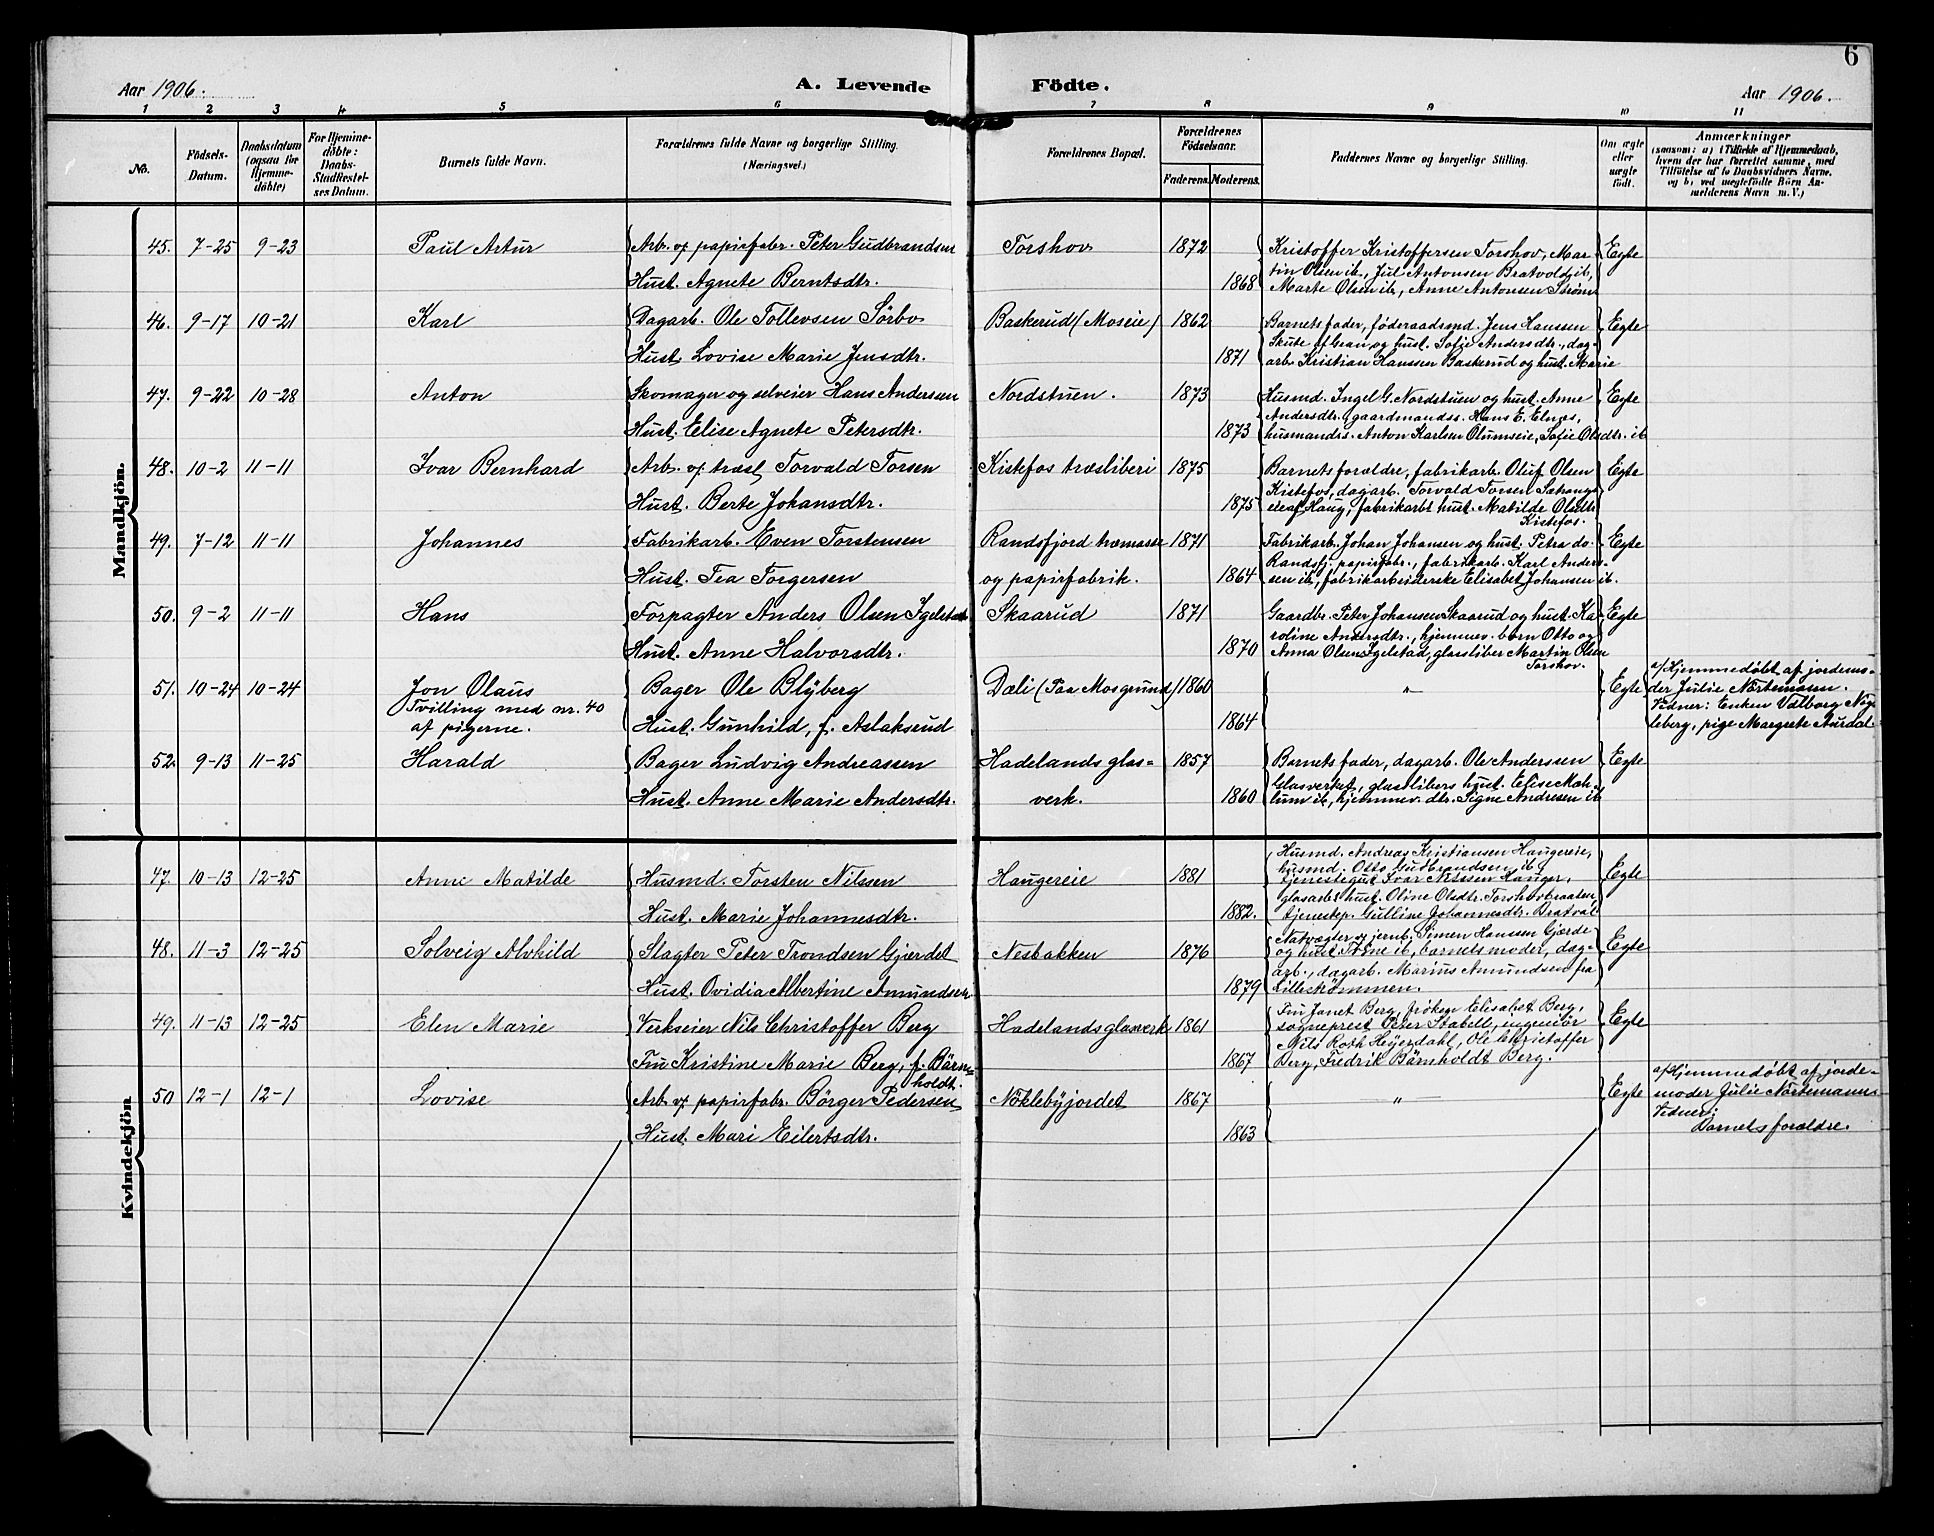 6
Aar 1906.
A. Levende Födte.
Aar 1906.
1 2 3 4 5 6 7 8 9 10 11
No.
Födsels-Datum.
Daabsdatum (ogsaa for Hjemmedöbte)
For Hjemmedöbte: Daabs-Stadfæstelses Datum.
Barnets fulde Navn.
Forældrenes fulde Navne og borgerlige Stilling. (Næringsvei.)
Forældrenes Bopæl.
Forældrenes Födselsaar.
Faderens. Moderens.
Faddernes Navne og borgerlige Stilling.
Om ægte eller uægte født.
Anmærkninger
(saasom: a) i Tilfælde af Hjemmedaab, hvem der har forrettet samme, med Tilföielse af to Daabsvidners Navne. og b) ved uægtefödte Börn Anmelderens Navn m. V.)
Mandkjön.
45. 7-25 9-23 Paul Artur Arb. v. papirfabr. Peter Gudbrandsen Torshov 1872 Kristoffer Kristoffersen Torshov, Mar- Egte
tin Olsen ib., Jul Antonsen Bratvold ib,
Hust. Agnete Berntsdtr. 1868 Marte Olsen ib, Anne Antonsen Strøm
46. 9-17 10-21 Karl Dagarb. Ole Tollevsen Sörbo Baskerud (Moseie) 1862 Barnets fader, föderaadsmd. Jens Hanssen Egte
Skute af Gran, og hust. Sofie Andersdtr., dag-
Hust. Lovise Marie Jensdtr. 1871 arb. Kristian Hanssen Baskerud og hust. Marie
47. 9-22 10-28 Anton Skomager og selveier Hans Anderssen Nordstuen. 1873 Husmd. Ingel G. Nordstuen og hust. Anne Egte
Andersdtr., gaardmandss. Hans E. Elnæs,
Hust. Elise Agnete Petersdtr. 1873 husmandss. Anton Karlsen Olumseie, Sofie Olsdtr. ib
48. 10-2 11-11 Ivar Bernhard Arb. v. træsl. Torvald Torsen Kistefos træsliberi 1875 Barnets forældre, fabrikarb. Oluf Olsen Egte
Kistefos, dagarb. Torvald Torsen Sætrang-
Hust. Berte Johansdtr. 1875 eie af Haug, fabrikarbs hust. Matilde Olsdtr
Kistefos.
49. 7-12 11-11 Johannes Fabrikarb. Even Torstensen Randsfjord træmasse 1871 Fabrikarb. Johan Johansen og hust. Petra do. Egte
Randsfj. papirfabr., fabrikarb. Karl Anders-
Hust. Tea Torgersen og papirfabrik. 1864 sen ib, fabrikarbeiderske Elisabet Johansen ib.
50. 9-2 11-11 Hans Forpagter Anders Olsen Igelstad Skaarud 1871 Gaardbr. Peter Johansen Skaarud og hust. Ka- Egte
roline Andersdtr., hjemmev. börn Otto og
Hust. Anne Halvorsdtr. 1870 Anna Olsen Igelstad, glassliber Martin Olsen
Torshov.
51. 10-24 10-24 Jon Olaus Bager Ole Blÿberg Dæli (Paa Mosgrund) 1860 " Egte a/ Hjemmedøbt af jordemo-
Tvilling med nr. 40 der Julie Nørtemann.
af pigerne. Hust. Gunhild, f. Aslaksrud 1864 Vidner: Enken Valborg Nøk-
leberg, pige Margrete Aurdal
52. 9-13 11-25 Harald Bager Ludvig Andreassen Hadelands glas- 1857 Barnets fader, dagarb. Ole Anderssen Egte
Glasverket, glasslibers hust. Elise Moh-
Hust. Anne Marie Andersdtr. verk. 1860 lum ib, hjemmev. dtr. Signe Andresen ib
Kvindekjön
47. 10-13 12-25 Anne Matilde Husmd. Torsten Nilssen Haugereie 1881 Husmd. Andreas Kristiansen Haugereie, Egte
husmd. Otto Gudbrandsen ib,
tjenestegut Ivar Nilssen Hauger,
glasarbs hust. Oline Olsdtr. Torshovbraaten,
Hust. Marie Johannesdtr. 1882. tjenestep. Gulline Johannesdtr. Bratval
48. 11-3 12-25 Solveig Alvhild Slagter Peter Trondsen Gjerdet Nesbakken 1876 Natvægter v. jernb. Simen Hanssen Gjærde Egte
og hust. Trine ib, barnets moder, dag-
arb., dagarb. Marius Amundsen fra
Hust. Ovidia Albertine Amundsdtr. 1879 Lilleströmmen.
49. 11-13 12-25 Elen Marie Verkseier Nils Christoffer Berg Hadelands glasverk 1861 Fru Janet Berg, frøken Elisabet Berg, Egte
sogneprest Peter Stabell, ingeniör
Nils Roth Heÿerdahl, Ole Christoffer
Fru Kristine Marie Berg, f. Bärn- 1867 Berg, Fredrik Bärnholdt Berg.
holdt.
50 12-1 12-1 Lovise Arb. v. papirfabr. Börger Pedersen Nöklebÿjordet 1867 " Egte a/ Hjemmedöbt af jorde-
moder Julie Nørtemann.
Hust. Mari Eilertsdtr. 1863 Vidner:
Barnets forældre.